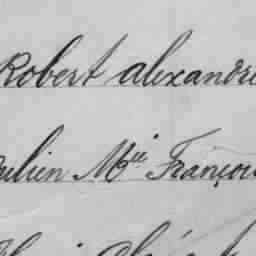 Robert alexandre
Julien Mie François